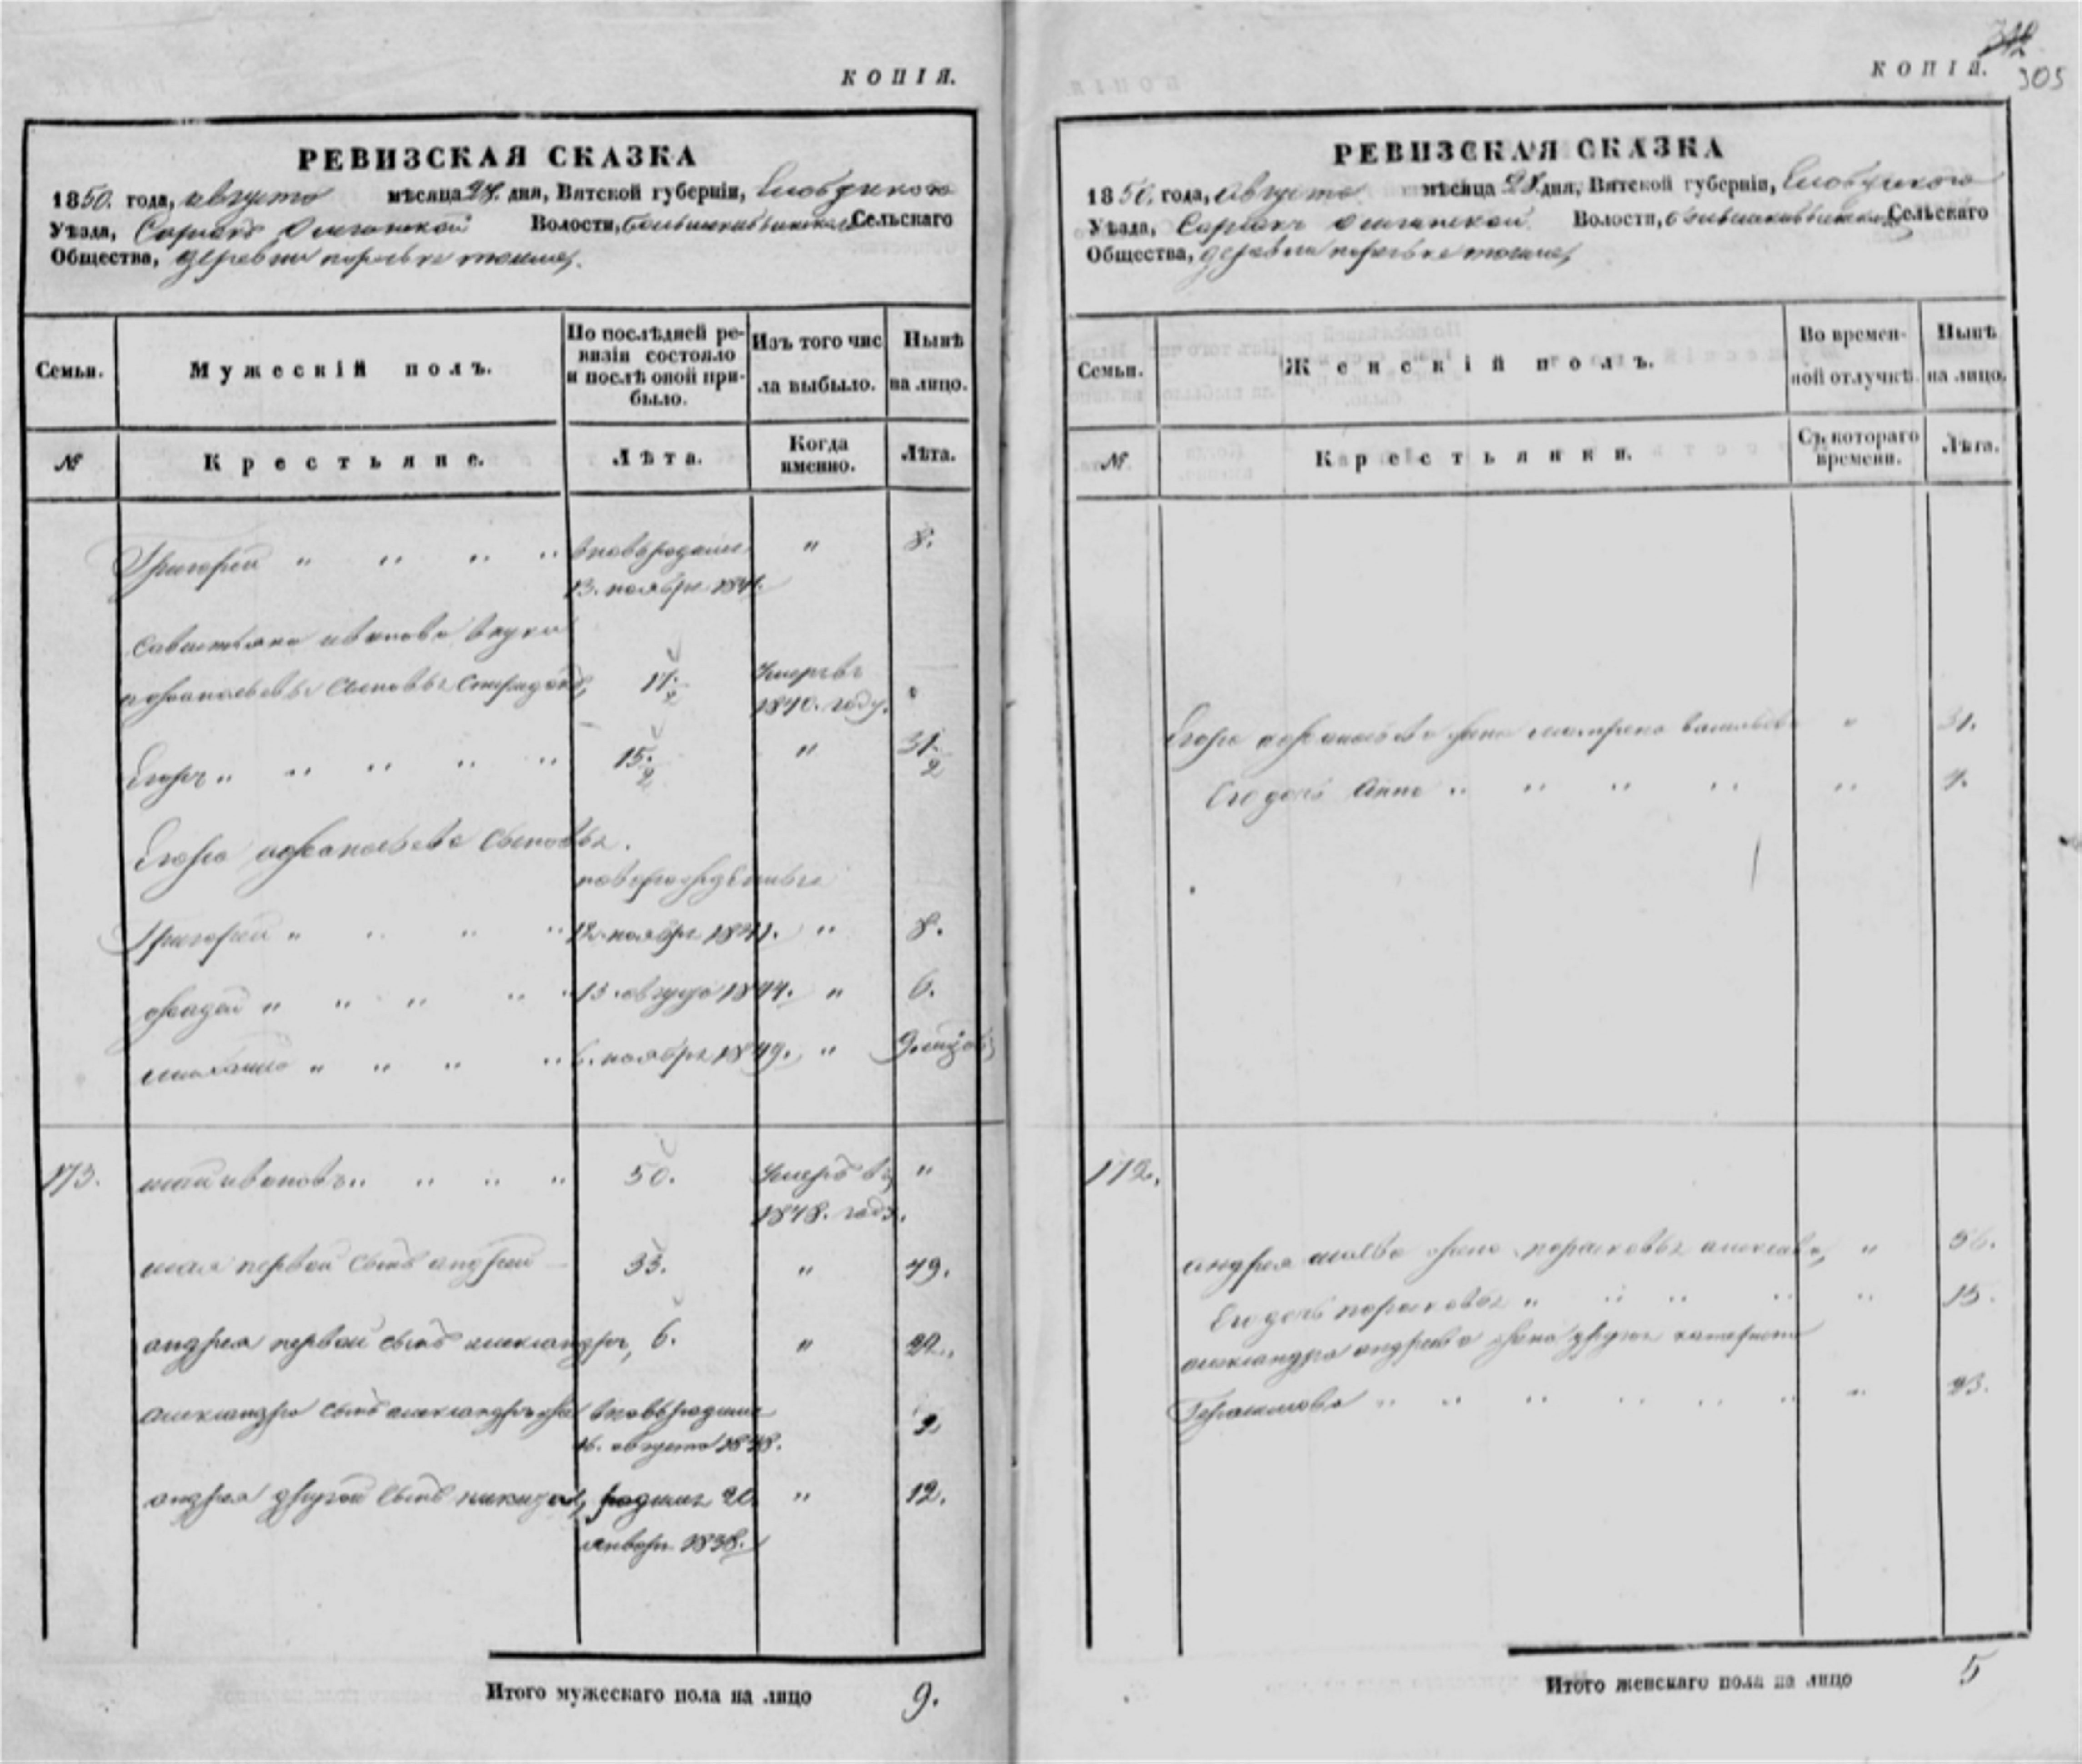 КОПІЯ.
РЕВИЗСКАЯ СКАЗКА
1850. года, августа мѣсяца 28. дня, Вятской губерніи, Слободскаго
Уѣзда, Волости, Сельскаго
Общества, деревни
Семьи. Мужескій полъ. По послѣдней ре-
визіи состояло
и послѣ оной при-
было. Изъ того чис
ла выбыло. Нынѣ
на лицо.
№ Крестьяне. Лѣта. Когда
именно. Лѣта.
Григорей " " " " вновьродился " 8.
13. ноября 1841.
савастьяна иванова внуки
афонасьевы сыновья спиридонъ, 17. 1/2 Умеръ въ
1840. году.
Егоръ " " " " " 15. 1/2 " 31. 1/2
Егора афонасьева сыновья.
новорожденныя
Григорей " " " " 12. ноября 1841. " 8.
фадей " " " " " 13 августа 1844. " 6.
михайло " " " " 6. ноября 1849. " 9. месяцовъ
173. ивановъ " " " " 50. Умеръ въ "
1848. году.
первой сынъ андрей 33. " 49.
андрея первой сынъ александръ, 6. " 22.
александра сынъ александръ вновьродился 2
16. августа 1848.
андрея другой сынъ никида, родился 20 " 12.
января 1838.
Итого мужескаго пола на лицо 9.
КОПІЯ.
312
305
РЕВИЗСКАЯ СКАЗКА
1850. года, августа мѣсяца 28. дня, Вятской губерніи, Слободскаго
Уѣзда, Волости, Сельскаго
Общества, деревни
Семьи. Женскій полъ. Во времен-
ной отлучкѣ. Нынѣ
на лицо.
№ Карестьянки. Съ котораго
времени. Лѣта.
Егора афонасьева жена матрена васильева " 31.
Его дочь Анна " " " " " 4.
172.
андрея жена парасковья алексеева, " 56.
Его дочь парасковья " " " " " 15.
александра андреева жена другая катерина
Герасимова " " " " " " " 23.
Итого женскаго пола на лицо 5